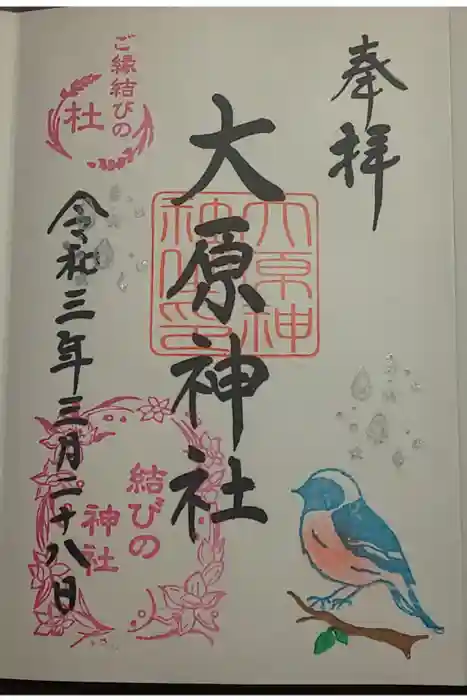 奉拝
大原神社
大原神社之印
ご縁結びの
杜
令和三年三月二十八日
結びの
神社